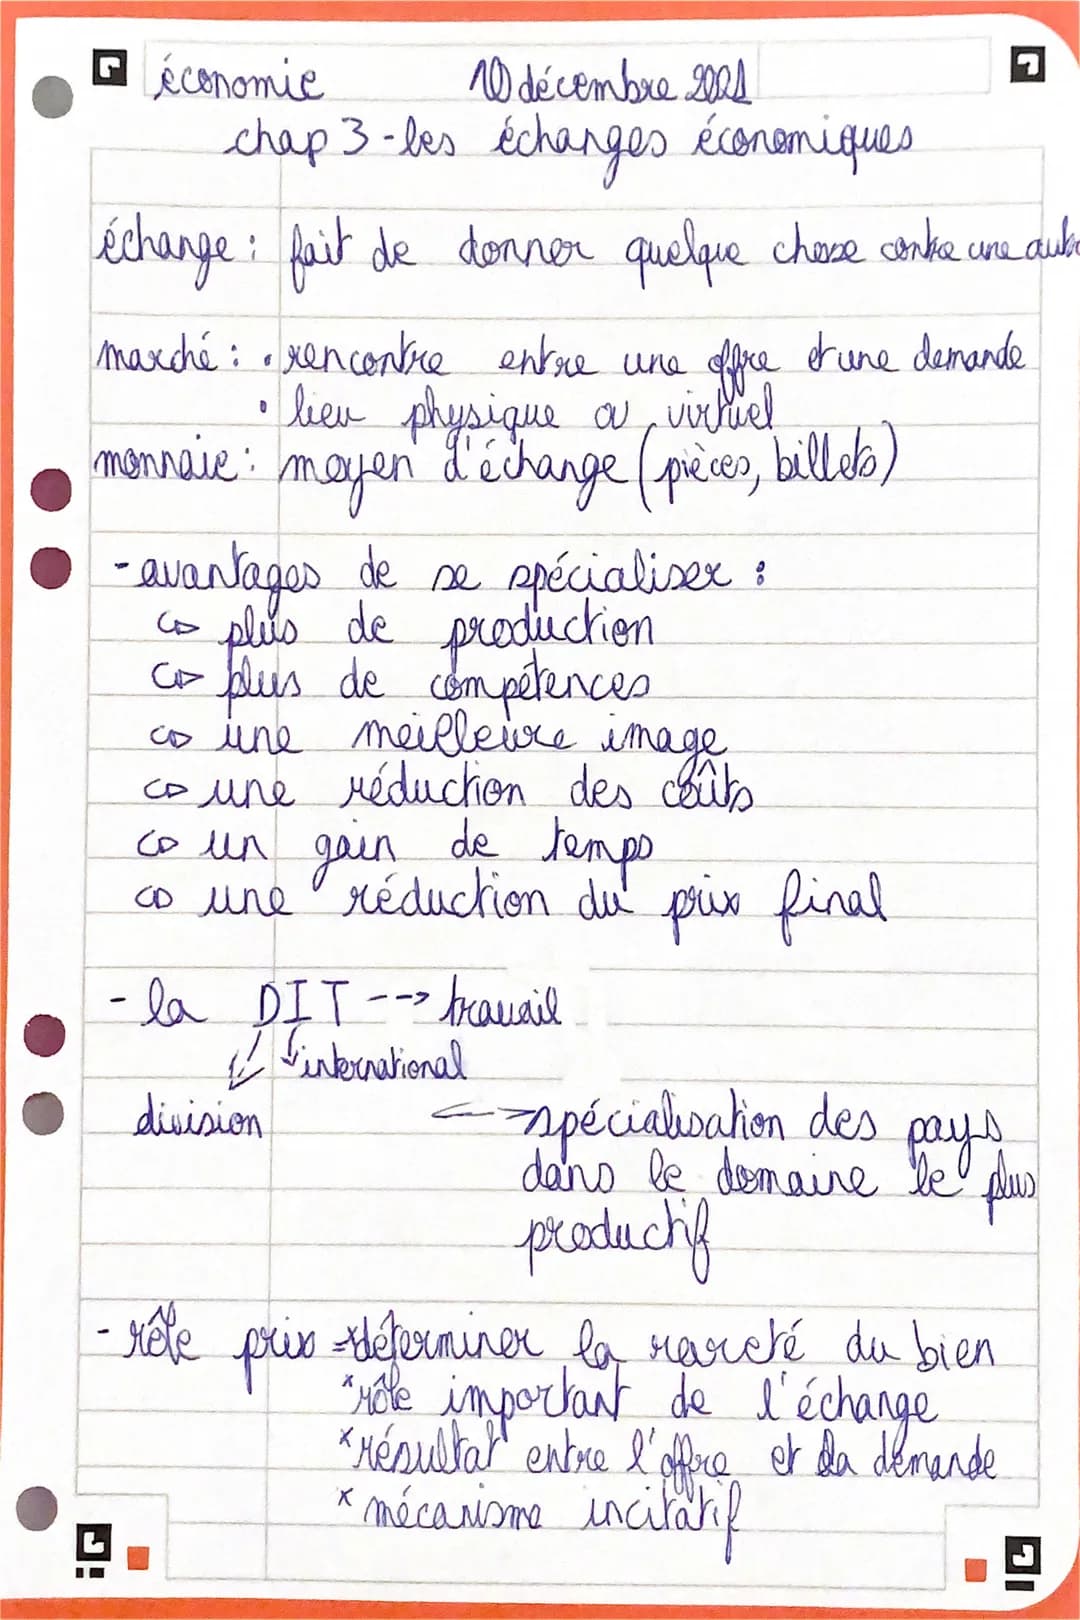 économie 10 décembre 2021
chap 3 - les échanges économiques
échange : fait de donner quelque chose contre une autre
marché : • rencontre entre une offre et une demande
• lieu physique ou virtuel
monnaie : moyen d'échange (pièces, billets)
- avantages de se spécialiser :
↪ plus de production
↪ plus de compétences
↪ une meilleure image
↪ une réduction des coûts
↪ un gain de temps
↪ une réduction du prix final
- la DIT --> travail
international
division
↪ spécialisation des pays
dans le domaine le plus
productif
- rôle prix * déterminer la rareté du bien
* rôle important de l'échange
* résultat entre l'offre et la demande
* mécanisme incitatif